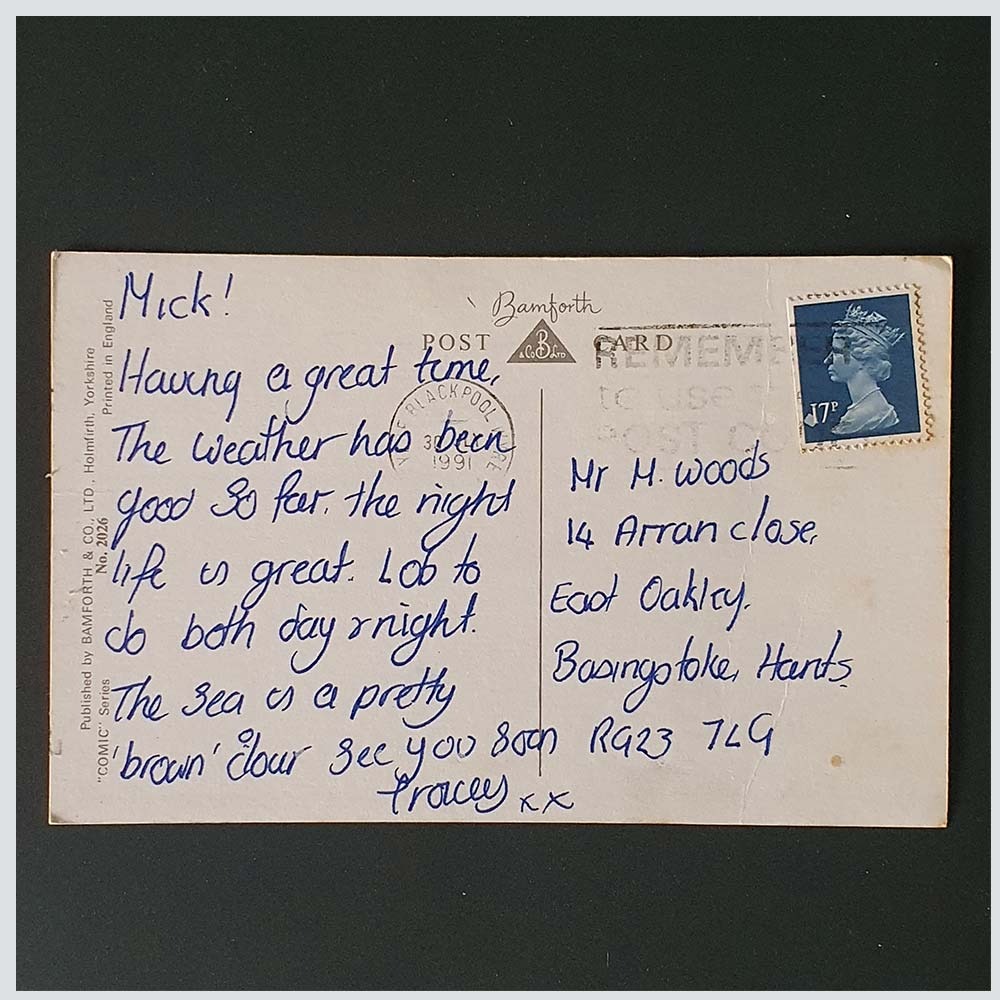 Mick!
Having a great time.
The weather has been
good so far. the night
life is great. Lob to
do both day & night.
The sea is a pretty
'brown' clour see you soon
Tracey xx
Bamforth
POST CARD
& Co B Ltd
BLACKPOOL
30
1991
REMEMBER
to use
POST C
17P
Mr M. Woods
14 Arran close,
East Oakley.
Basingstoke, Hants.
RG23 7LG
Published by BAMFORTH & CO., LTD., Holmfirth, Yorkshire
Printed in England
"COMIC" Series No. 2026